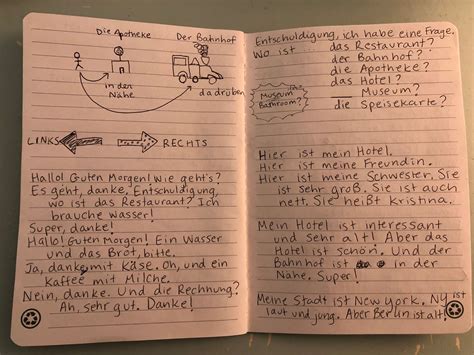 Die Apotheke
Der Bahnhof
in der
Nähe
da drüben
LINKS
RECHTS
Hallo! Guten Morgen! Wie geht's?
Es geht, danke. Entschuldigung,
wo ist das Restaurant? Ich
brauche Wasser!
Super, danke!
Hallo! Guten Morgen! Ein Wasser
und das Brot, bitte.
Ja, danke, mit Käse. Oh, und ein
Kaffee mit Milche.
Nein, danke. Und die Rechnung?
Ah, sehr gut. Danke!
Entschuldigung, ich habe eine Frage.
Wo ist ... das Restaurant?
der Bahnhof?
die Apotheke?
das Hotel?
Museum?
die Speisekarte?
Museum
Bathroom?
Hier ist mein Hotel.
Hier ist meine Freundin.
Hier ist meine Schwester, Sie
ist sehr groß. Sie ist auch
nett. Sie heißt Kristina.
Mein Hotel ist interessant
und sehr alt! Aber das
Hotel ist schön. Und der
Bahnhof ist in der
Nähe. Super!
Meine Stadt ist New York. NY ist
laut und jung. Aber Berlin ist alt!